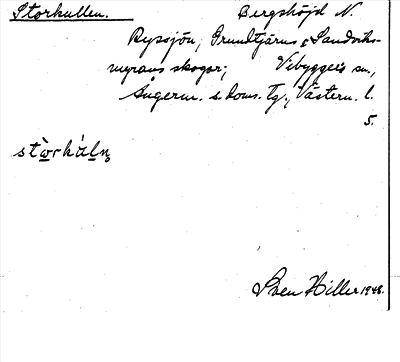 Storkullen. Bergshöjd N.
Ryssjön, Grundtjärns & Sandviks-
myrans skogar; Vibyggerå sn.,
Ångerm. s. doms. Tg., Västern. l.
5.
stò̱rkàḻn̥
Sven Hiller 1948.